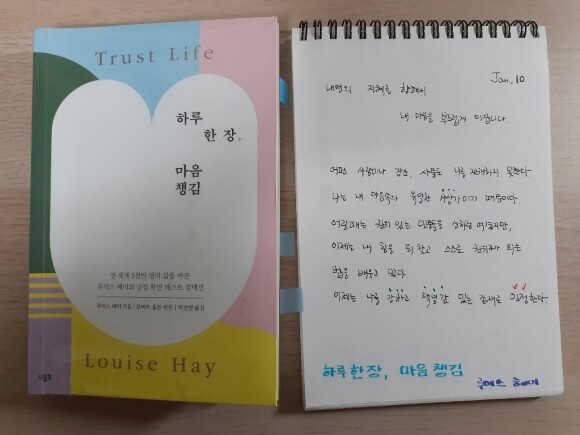 Trust Life
하루
한 장,
마음
챙김
전 세계 5천만 명의 삶을 바꾼
루이스 헤이의 긍정 확언 베스트 컬렉션
루이스 헤이 지음 / 로버트 홀든 엮음 / 박선령 옮김
니들북
Louise Hay
Jan. 10
내면의 지혜를 향해서
내 마음을 부드럽게 이끕니다.
어떤 사람이나 장소, 사물도 나를 지배하지 못한다.
나는 내 마음속의 유일한 사상가이기 때문이다.
어릴때는 힘이 있는 면들을 신처럼 여겼지만,
이제는 내 힘을 되찾고 스스로 권위자가 되는
법을 배우고 있다.
이제는 나를 강하고 책임감 있는 존재로 인정한다.
하루 한 장, 마음 챙김
루이스 헤이